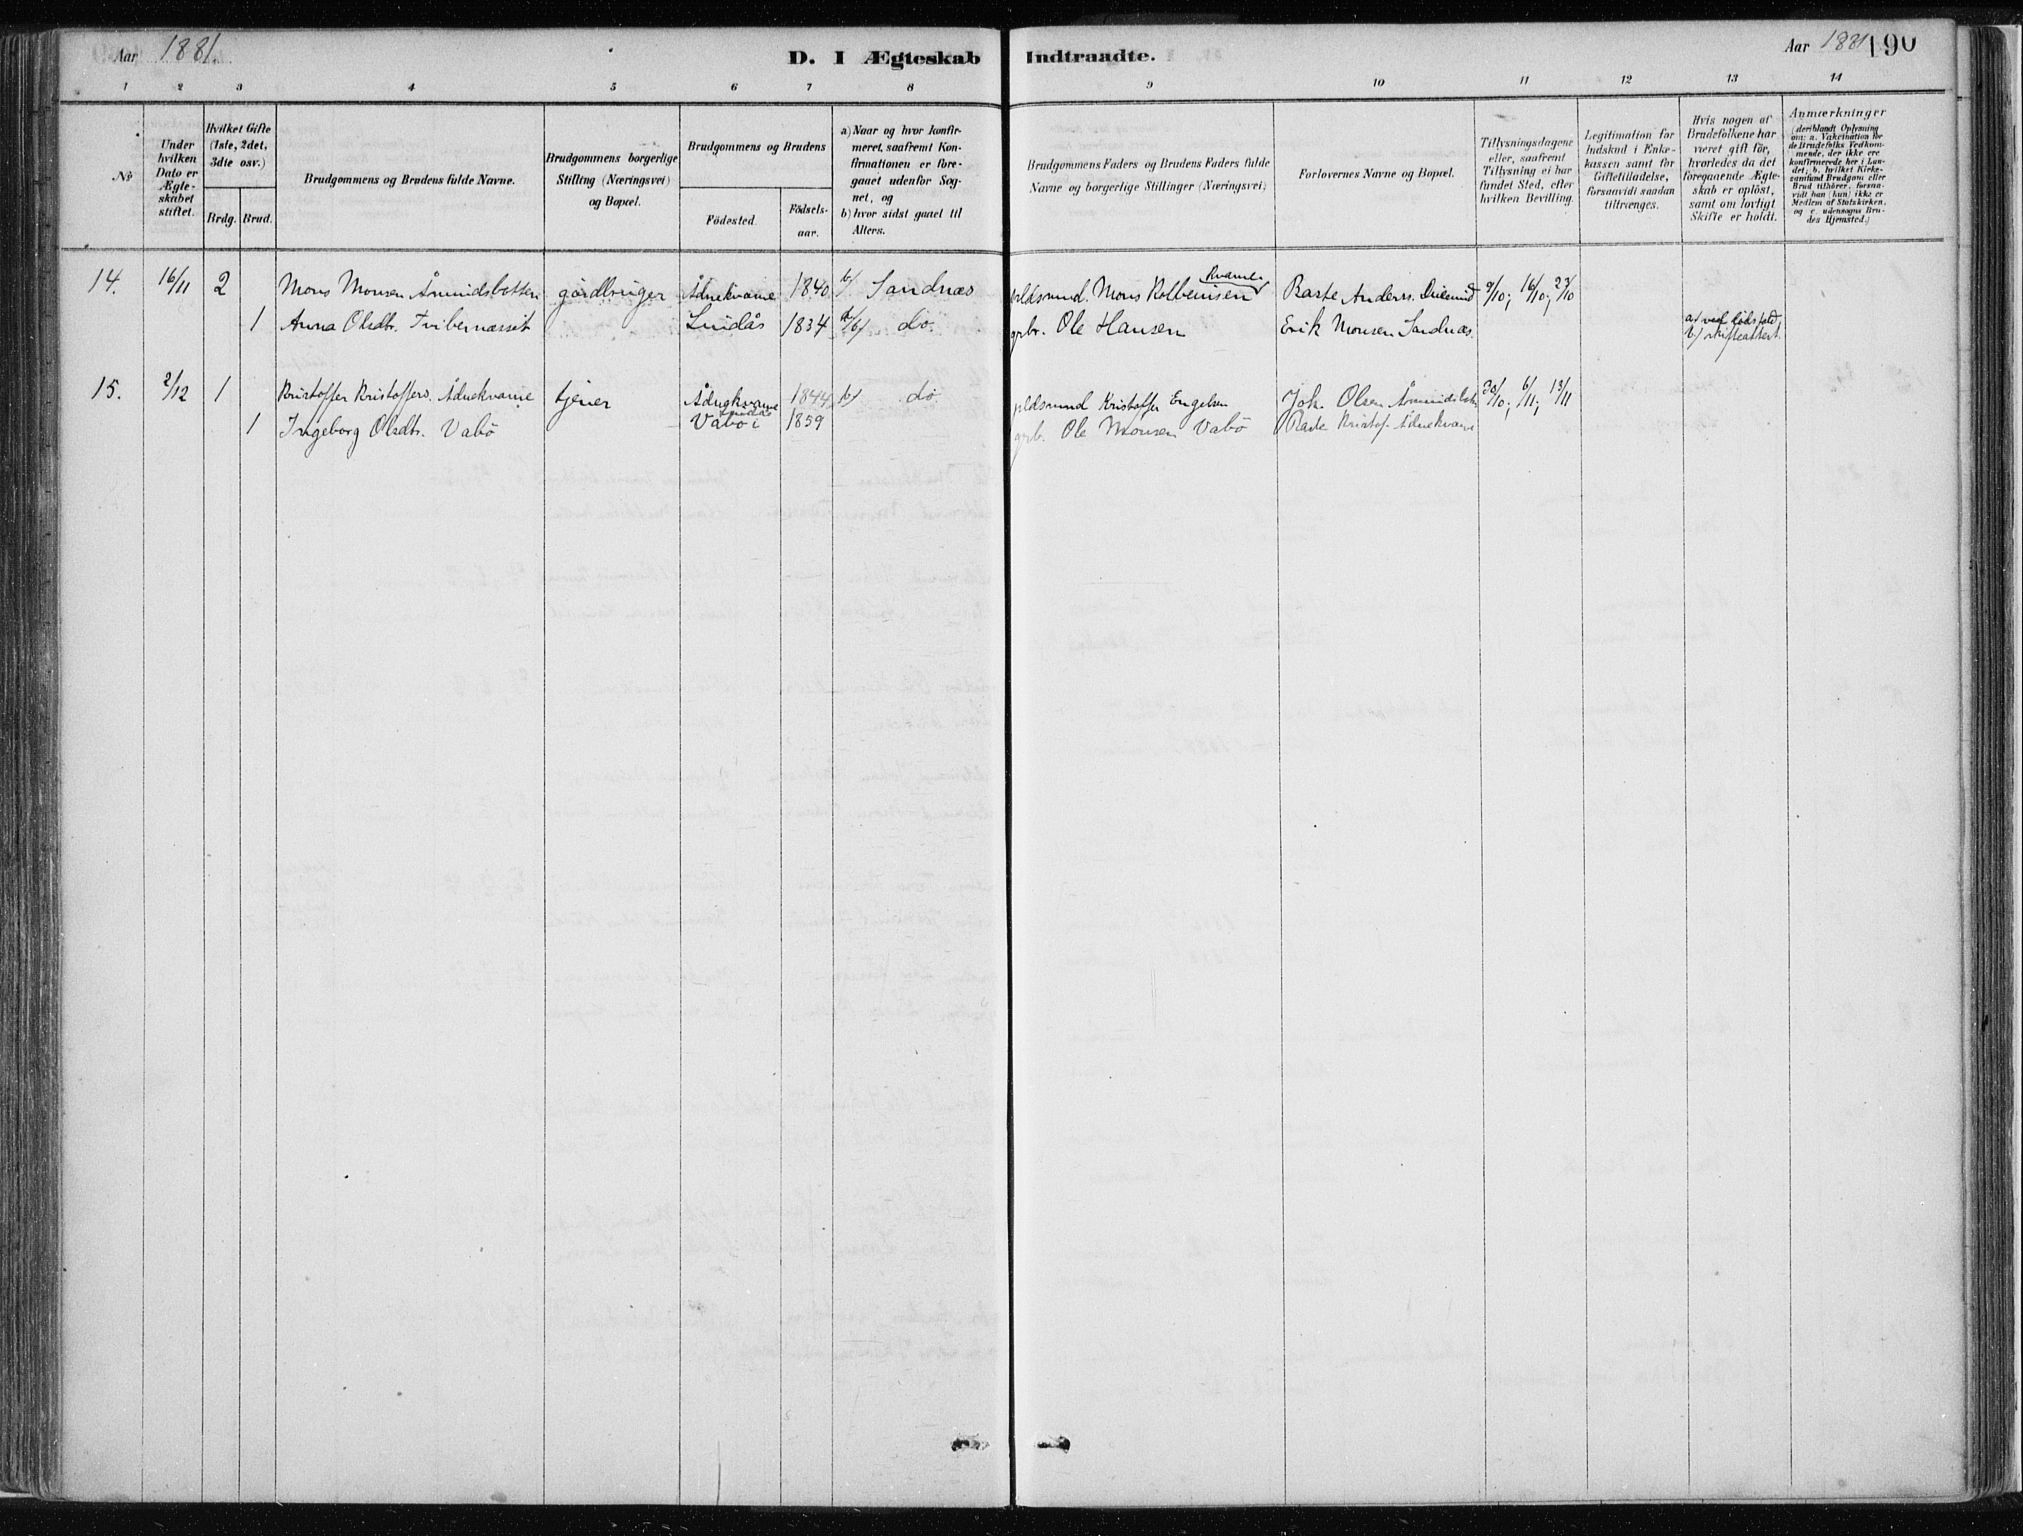 Aar 1881.
D. I Ægteskab Indtraadte.
Aar 1881 190
1 2 3 4 5 6 7 8 9 10 11 12 13 14
No
Under hvilken Dato er Ægteskabet stiftet.
Hvilket Gifte (1ste, 2det, 3die osv.)
Brdg. Brud.
Brudgommens og Brudens fulde Navne.
Brudgommens borgerlige Stilling (Næringsvei) og Bopæl.
Brudgommens og Brudens
Födested.
Födsels-aar.
a) Naar og hvor konfirmeret, saafremt Konfirmationen er foregaaet udenfor Sognet, og
b) hvor sidst gaaet til Alters.
Brudgommens Faders og Brudens Faders fulde Navne og borgerlige Stillinger (Næringsvei)
Forlovernes Navne og Bopæl.
Tillysningsdagene eller, saafremt Tillysning ei har fundet Sted, efter hvilken Bevilling.
Legitimation for Indskud i Enkekassen samt for Giftetilladelse, forsaavidt saadan tiltrænges.
Hvis nogen af Brudefolkene har været gift för, hvorledes da det foregaaende Ægteskab er oplöst, samt om lovligt Skifte er holdt.
Anmærkninger
(deriblandt Oplysning om: a. Vakcination for de Brudefolks Vedkommende, der ikke ere konfirmerede her i Landet; b. hvilket Kirkesamfund Brudgom eller Brud tilhörer, forsaavidt han (hun) ikke er Medlem af Statskirken, og c. udensogns Brudes Hjemsted.)
14. 16/11 2 Mons Monsen Åmundsbotten gårdbruger Ådnekvame 1840 b/ Sandnæs foldsmd. Mons Kolbeinsen Kvame Baste Anders. 9/10, 16/10, 23/10
1 Anna Olsdtr. Fribernæsset Lindås 1834 b/ do. grbr. Ole Hansen Erik Monsen Sandnæs. a/ ved dödsfald b/ skifteattest.
15. 2/12 1 Kristoffer Kristoffers. Ådnekvame tjener Ådnekvame 1844 b/ do foldsmd Kristoffer Engelsen Joh. Olsen 30/10, 6/11, 13/11
1 Ingeborg Olsdtr. Vabö Vabö i Lindås 1859 grbr. Ole Monsen Vabö Kristof. Ådnekvame